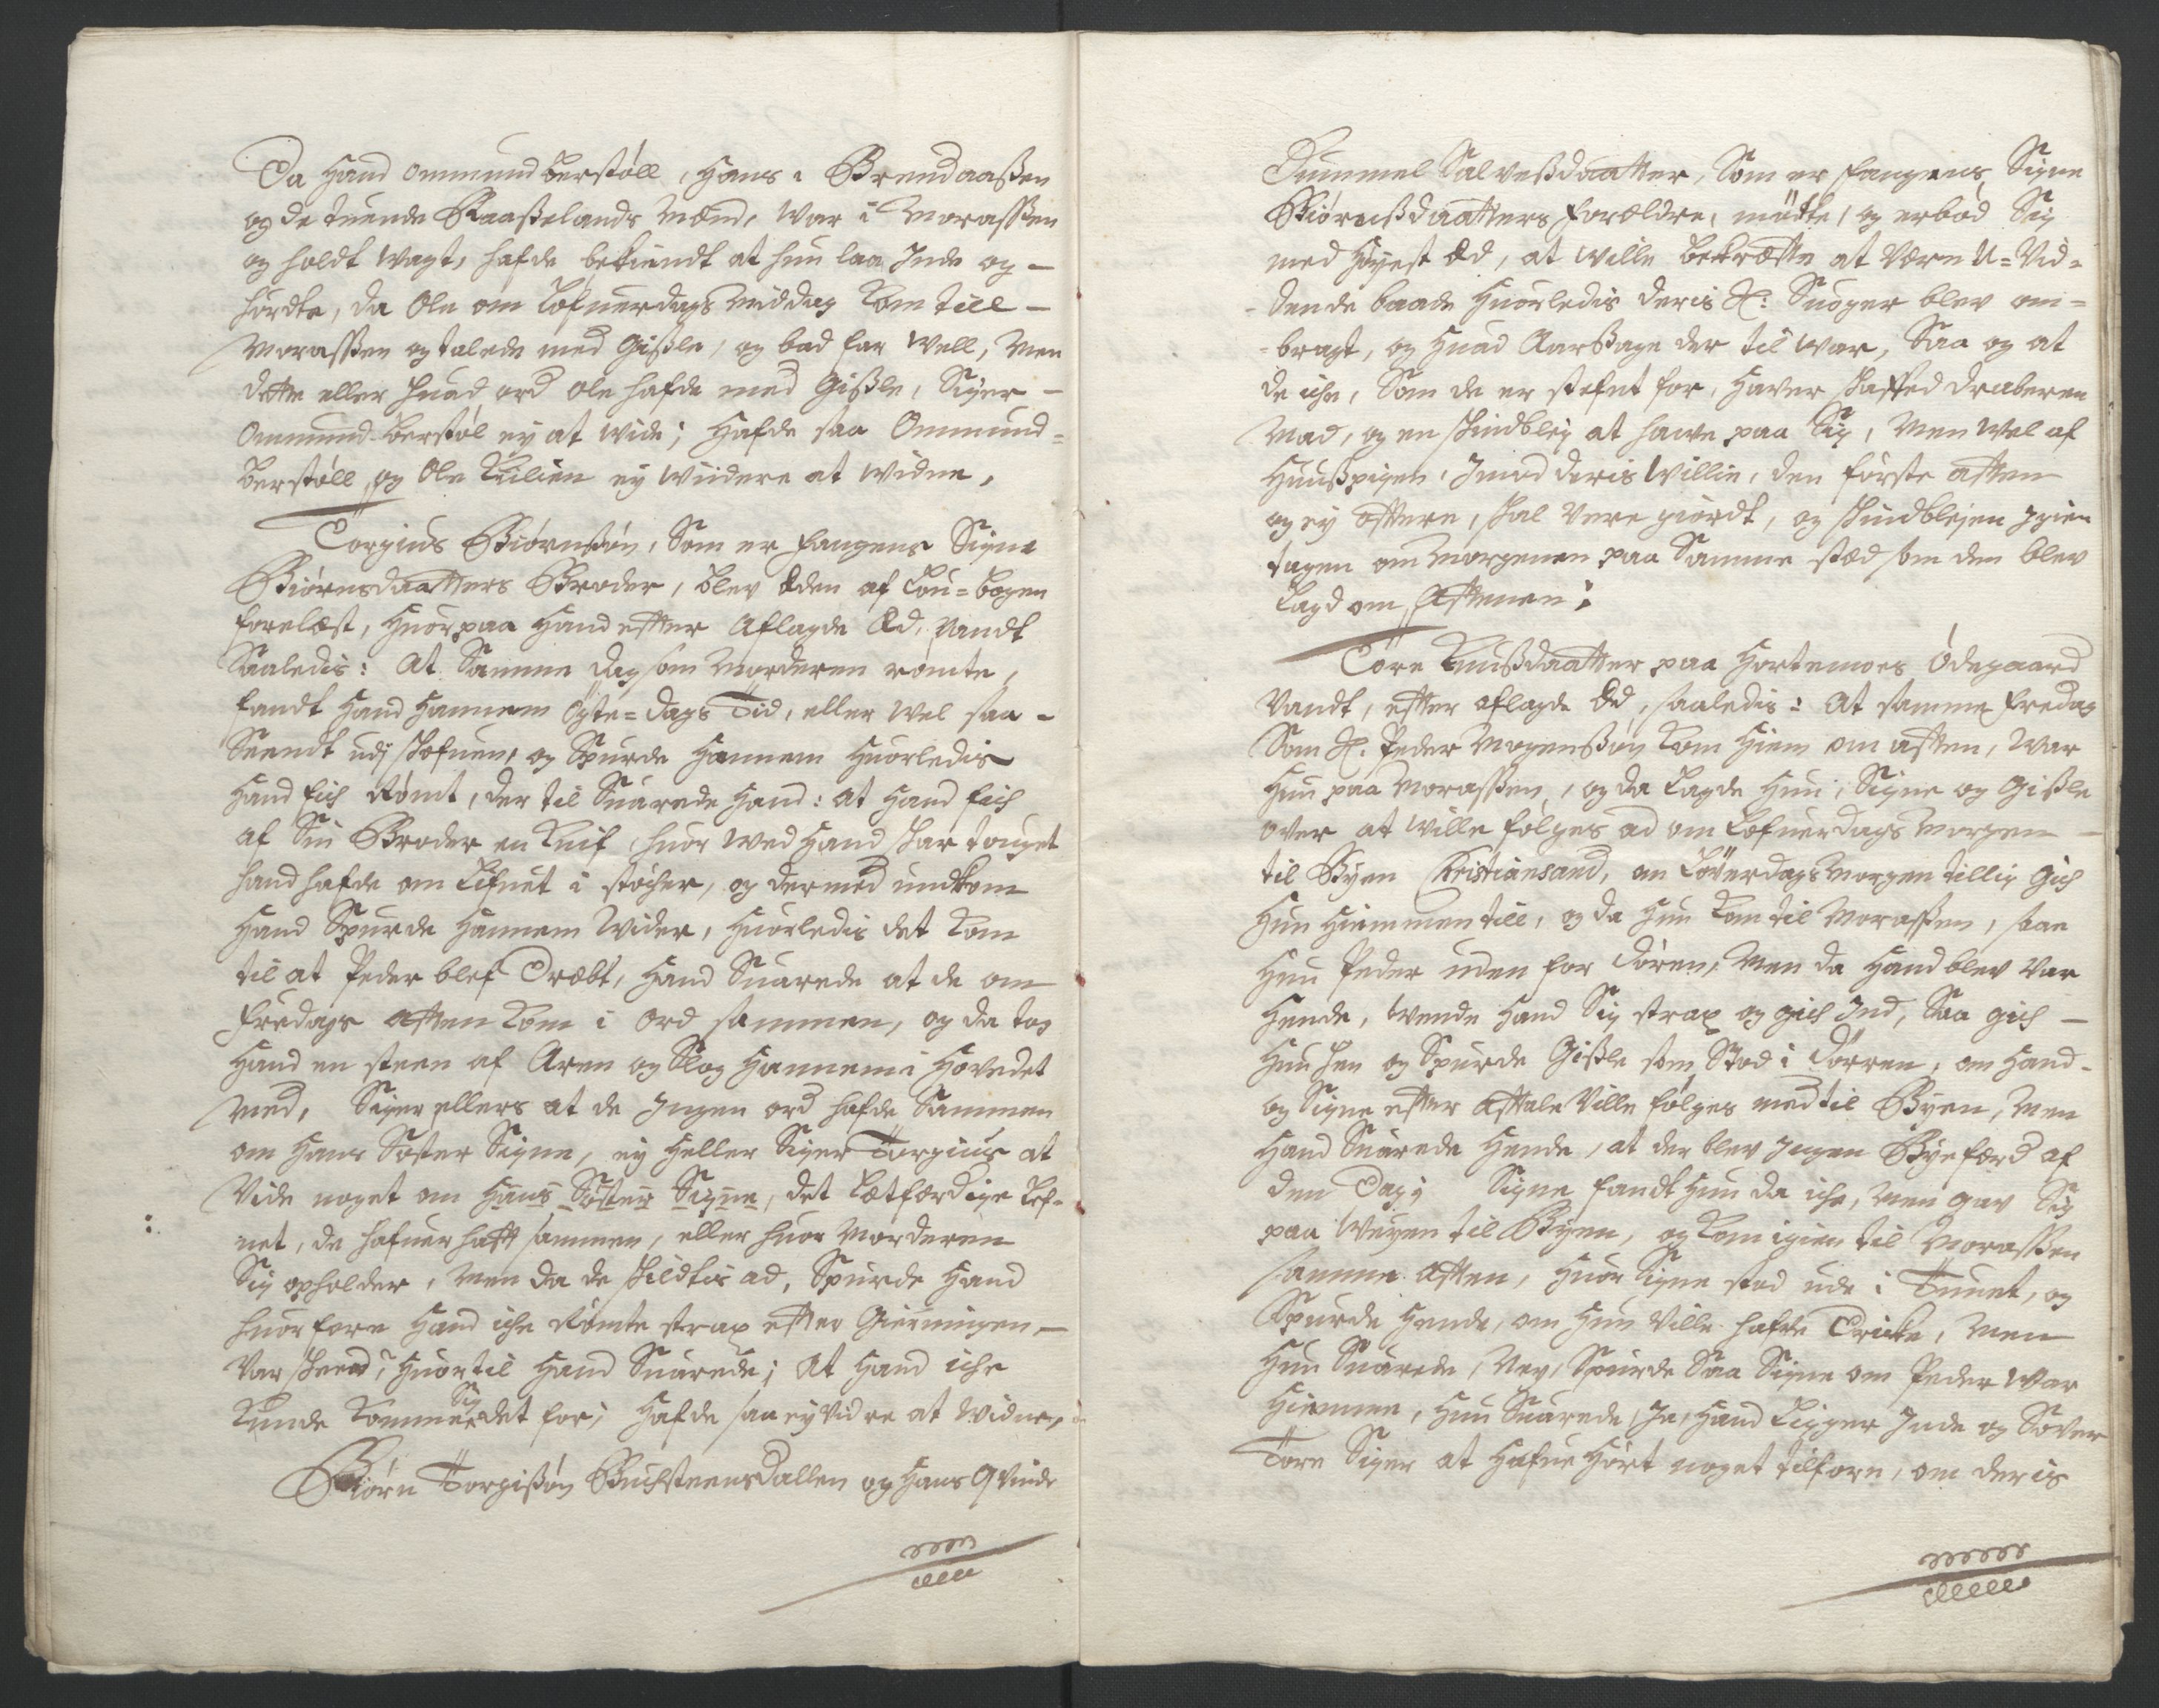 Da Hand Ommund Berstøll, Hans i Brendaaßen
og de tuende Raaßelands Mænd, War i Moraßen
og holdt Wagt, hafde bekiendt at hun laa Inde og
hørdte, da Ole om Løfuerdags Middag Kom till
Moraßen og talede med Gißle, og bad far Well, Men
dette eller huad ord Ole hafde med Gißle, Siger
Ommund Berstøl ey at wide; Hafde saa Ommund
Berstøll og Ole Kilien ey Widere at Widne,
Torgius Biørnßøn, Som er fangens Signe
Biørnsdaatters Broder, blev Eden af Lou-bogen
forelæst, Huorpaa Hand effter Aflagde Ed, Vandt
Saaledis: At Samme dag som Morderen rømte,
fandt Hand Hannem Øgte-Dags Tid, eller Wel saa
Seendt udj skofuen, og Spurde Hannem Huorledis
Hand fich Rømt, der til Suarede Hand: at Hand fich
af Sin Broder en Knif, huor wed Hand skar touget
hand hafde om Lifuet i støcher, og dermed undkom
Hand Spurde Hannem Wider, Huorledis det Kom
til at Peder blef Dræbt, Hand Suarede at de om
Fredags afften Kom i ord sammen, og da tog
Hand en steen af Aren og Slog Hannem i Hovedet
Med, Siger ellers at de Ingen ord hafde Sammen
om Hans Søster Signe, ey Heller Siger Torgius at
Vide noget om Hans Søster Signe, det Lætferdige Lef-
net, de hafuer hafft sammen, eller huor Morderen
Sig opholder, Men da de skildtis ad, Spurde Hand
huorfore Hand iche Rømte strax effter Gierningen
Var skeed, Huortil Hand Suarede; At Hand iche
Kunde Komme Sig det for; Hafde saa ey vidre at Widne,
Biørn Torgißøn BuchsteensDallen og Hans Qvinde
Gummel Salveßdaatter, Som er fangens Signe
Biørnßdaatters forældre, mødte, og erbød Sig
med Høyest Ed, at wille bekræffte at være U-Vid-
dende baade Huorledis deris S: Suoger blev om-
bragt, og Huad Aarßage der til War, Saa og at
de iche, Som de er stefnt for, Haver skaffed draberen
Mad, og en skindbley at hawe paa Sig, Men Wel af
Huußpigen, Imod deris Willie, den første afften
og ey offtere, skal være giordt, og skindblejen Igien
tagen om Morgenen paa Samme stæd som den blev
Lagd om Afftenen;
Tore Knußdaatter paa Hortemoes Ødegaard
Vandt, effter aflagde Ed, saaledis: At samme Fredag
Som S. Peder Mogenßøn Kom Hiem om afften, War
Hun paa Moraßen, og da Lagde Hun, Signe og Gißle
over at wille følges ad om Løfuerdags Morgen
til Byen Christiansand, om Løverdags Morgen tillig Gich
Hun Hiemmen till, og da Hun Kom til Moraßen, saae
Hun Peder uden for Døren, Men da Hand blev Var
Hende, Wende Hand Sig strax og gich Ind, Saa gich
Hun Hen og Spurde Gißle som Stod i Dørren, om Hand
og Signe effter Afftale Ville følges med til Byen, Men
Hand Suarede Hende, at der blev Ingen Byeferd af
den Dag; Signe fandt Hun da iche, Men gav Sig
paa Weyen til Byen, og Kom igien til Moraßen
samme Afften, Huor Signe stod ude i Tunet, og
Spurde Hende, om Hun Ville hafde Dricke, Men
Hun Suarede, Ney, Spurde Saa Signe om Peder War
Hiemme, Hun Suarede, Ja, Hand Ligger Inde og Sover
Tore Siger at Hafue Hørt noget tilforn, om deris